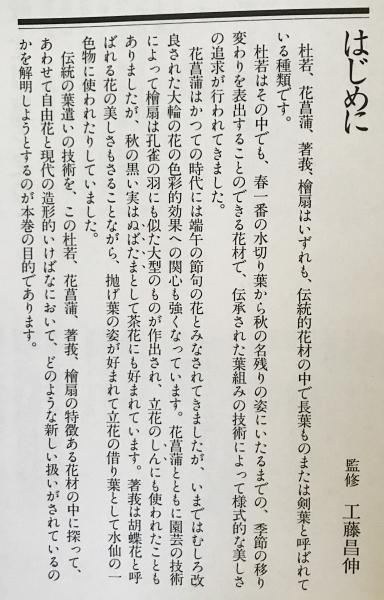 はじめに
監修 工藤昌伸
杜若、花菖蒲、著莪、檜扇はいずれも、伝統的花材の中で長葉ものまたは剣葉と呼ばれて
いる種類です。
杜若はその中でも、春一番の水切り葉から秋の名残りの姿にいたるまでの、季節の移り
変わりを表出することのできる花材で、伝承された葉組みの技術によって様式的な美しさ
の追求が行われてきました。
花菖蒲はかつての時代には端午の節句の花とみなされてきましたが、いまではむしろ改
良された大輪の花の色彩的効果への関心も強くなっています。花菖蒲とともに園芸の技術
によって檜扇は孔雀の羽にも似た大型のものが作出され、立花のしんにも使われたことも
ありましたが、秋の黒い実はぬばたまとして茶花にも好まれています。著莪は胡蝶花と呼
ばれる花の美しさもさることながら、抛げ葉の姿が好まれて立花の借り葉として水仙の一
色物に使われたりしていました。
伝統の葉遣いの技術を、この杜若、花菖蒲、著莪、檜扇の特徴ある花材の中に探って、
あわせて自由花と現代の造形的いけばなにおいて、どのような新しい扱いがされているの
かを解明しようとするのが本巻の目的であります。